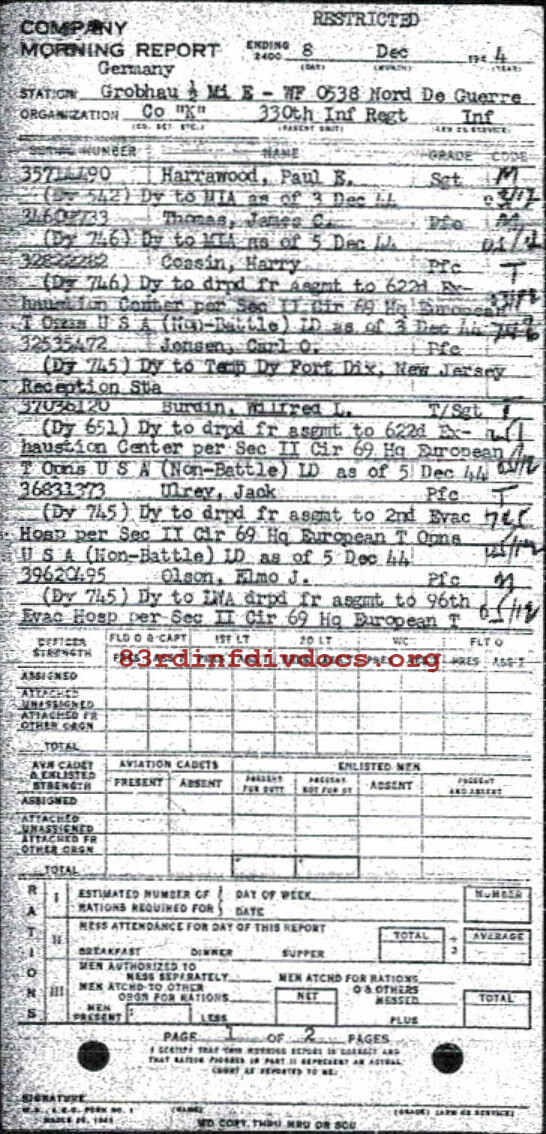 RESTRICTED
COMPANY
MORNING REPORT ENDING 2400 8 Dec 194 4
(DAY) (MONTH) (YEAR)
Germany
STATION Grobhau ½ Mi E - WF 0538 Nord De Guerre
ORGANIZATION Co "K" 330th Inf Regt Inf
(CO. DET. ETC.) (PARENT UNIT) (ARM OR SERVICE)
SERIAL NUMBER NAME GRADE CODE
35714490 Harrawood, Paul E. Sgt M
(Dy 542) Dy to MIA as of 3 Dec 44
34607733 Thomas, James C. Pfc M
(Dy 746) Dy to MIA as of 5 Dec 44
32822282 Cossin, Harry Pfc T
(Dy 746) Dy to drpd fr asgmt to 622d Ex-
haustion Center per Sec II Cir 69 Hq European
T Opns U S A (Non-Battle) LD as of 3 Dec 44
32535472 Jensen, Carl O. Pfc
(Dy 745) Dy to Temp Dy Fort Dix, New Jersey
Reception Sta
37036120 Burdin, Wilfred L. T/Sgt T
(Dy 651) Dy to drpd fr asgmt to 622d Ex-
haustion Center per Sec II Cir 69 Hq European
T Opns U S A (Non-Battle) LD as of 5 Dec 44
36831373 Ulrey, Jack Pfc T
(Dy 745) Dy to drpd fr asgmt to 2nd Evac 745
Hosp per Sec II Cir 69 Hq European T Opns
U S A (Non-Battle) LD as of 5 Dec 44
39620495 Olson, Elmo J. Pfc
(Dy 745) Dy to LWA drpd fr asgmt to 96th
Evac Hosp per Sec II Cir 69 Hq European T
OFFICER STRENGTH FLD O & CAPT 1ST LT 2D LT WO FLT O
83rdinfdivdocs.org
PRES ABS'T
ASSIGNED
ATTACHED UNASSIGNED
ATTACHED FR OTHER ORGN
TOTAL
AVN CADET & ENLISTED STRENGTH AVIATION CADETS ENLISTED MEN
PRESENT ABSENT PRESENT FOR DUTY PRESENT NOT FOR DY ABSENT PRESENT AND ABSENT
ASSIGNED
ATTACHED UNASSIGNED
ATTACHED FR OTHER ORGN
TOTAL
RATIONS
I ESTIMATED NUMBER OF RATIONS REQUIRED FOR DAY OF WEEK DATE NUMBER
II MESS ATTENDANCE FOR DAY OF THIS REPORT TOTAL ÷ 3 AVERAGE
BREAKFAST DINNER SUPPER
III MEN AUTHORIZED TO MESS SEPARATELY MEN ATCHD FOR RATIONS
MEN ATCHD TO OTHER ORGN FOR RATIONS NET O & OTHERS MESSED TOTAL
MEN PRESENT LESS PLUS
PAGE 1 OF 2 PAGES
I CERTIFY THAT THIS MORNING REPORT IS CORRECT AND
THAT RATION FIGURES IN PART II REPRESENT AN ACTUAL
COUNT AS REPORTED TO ME.
SIGNATURE
W.D., A.G.O. FORM NO. 1 (NAME) (GRADE) (ARM OR SERVICE)
MARCH 25, 1943
WD COPY THRU MRU OR SCU